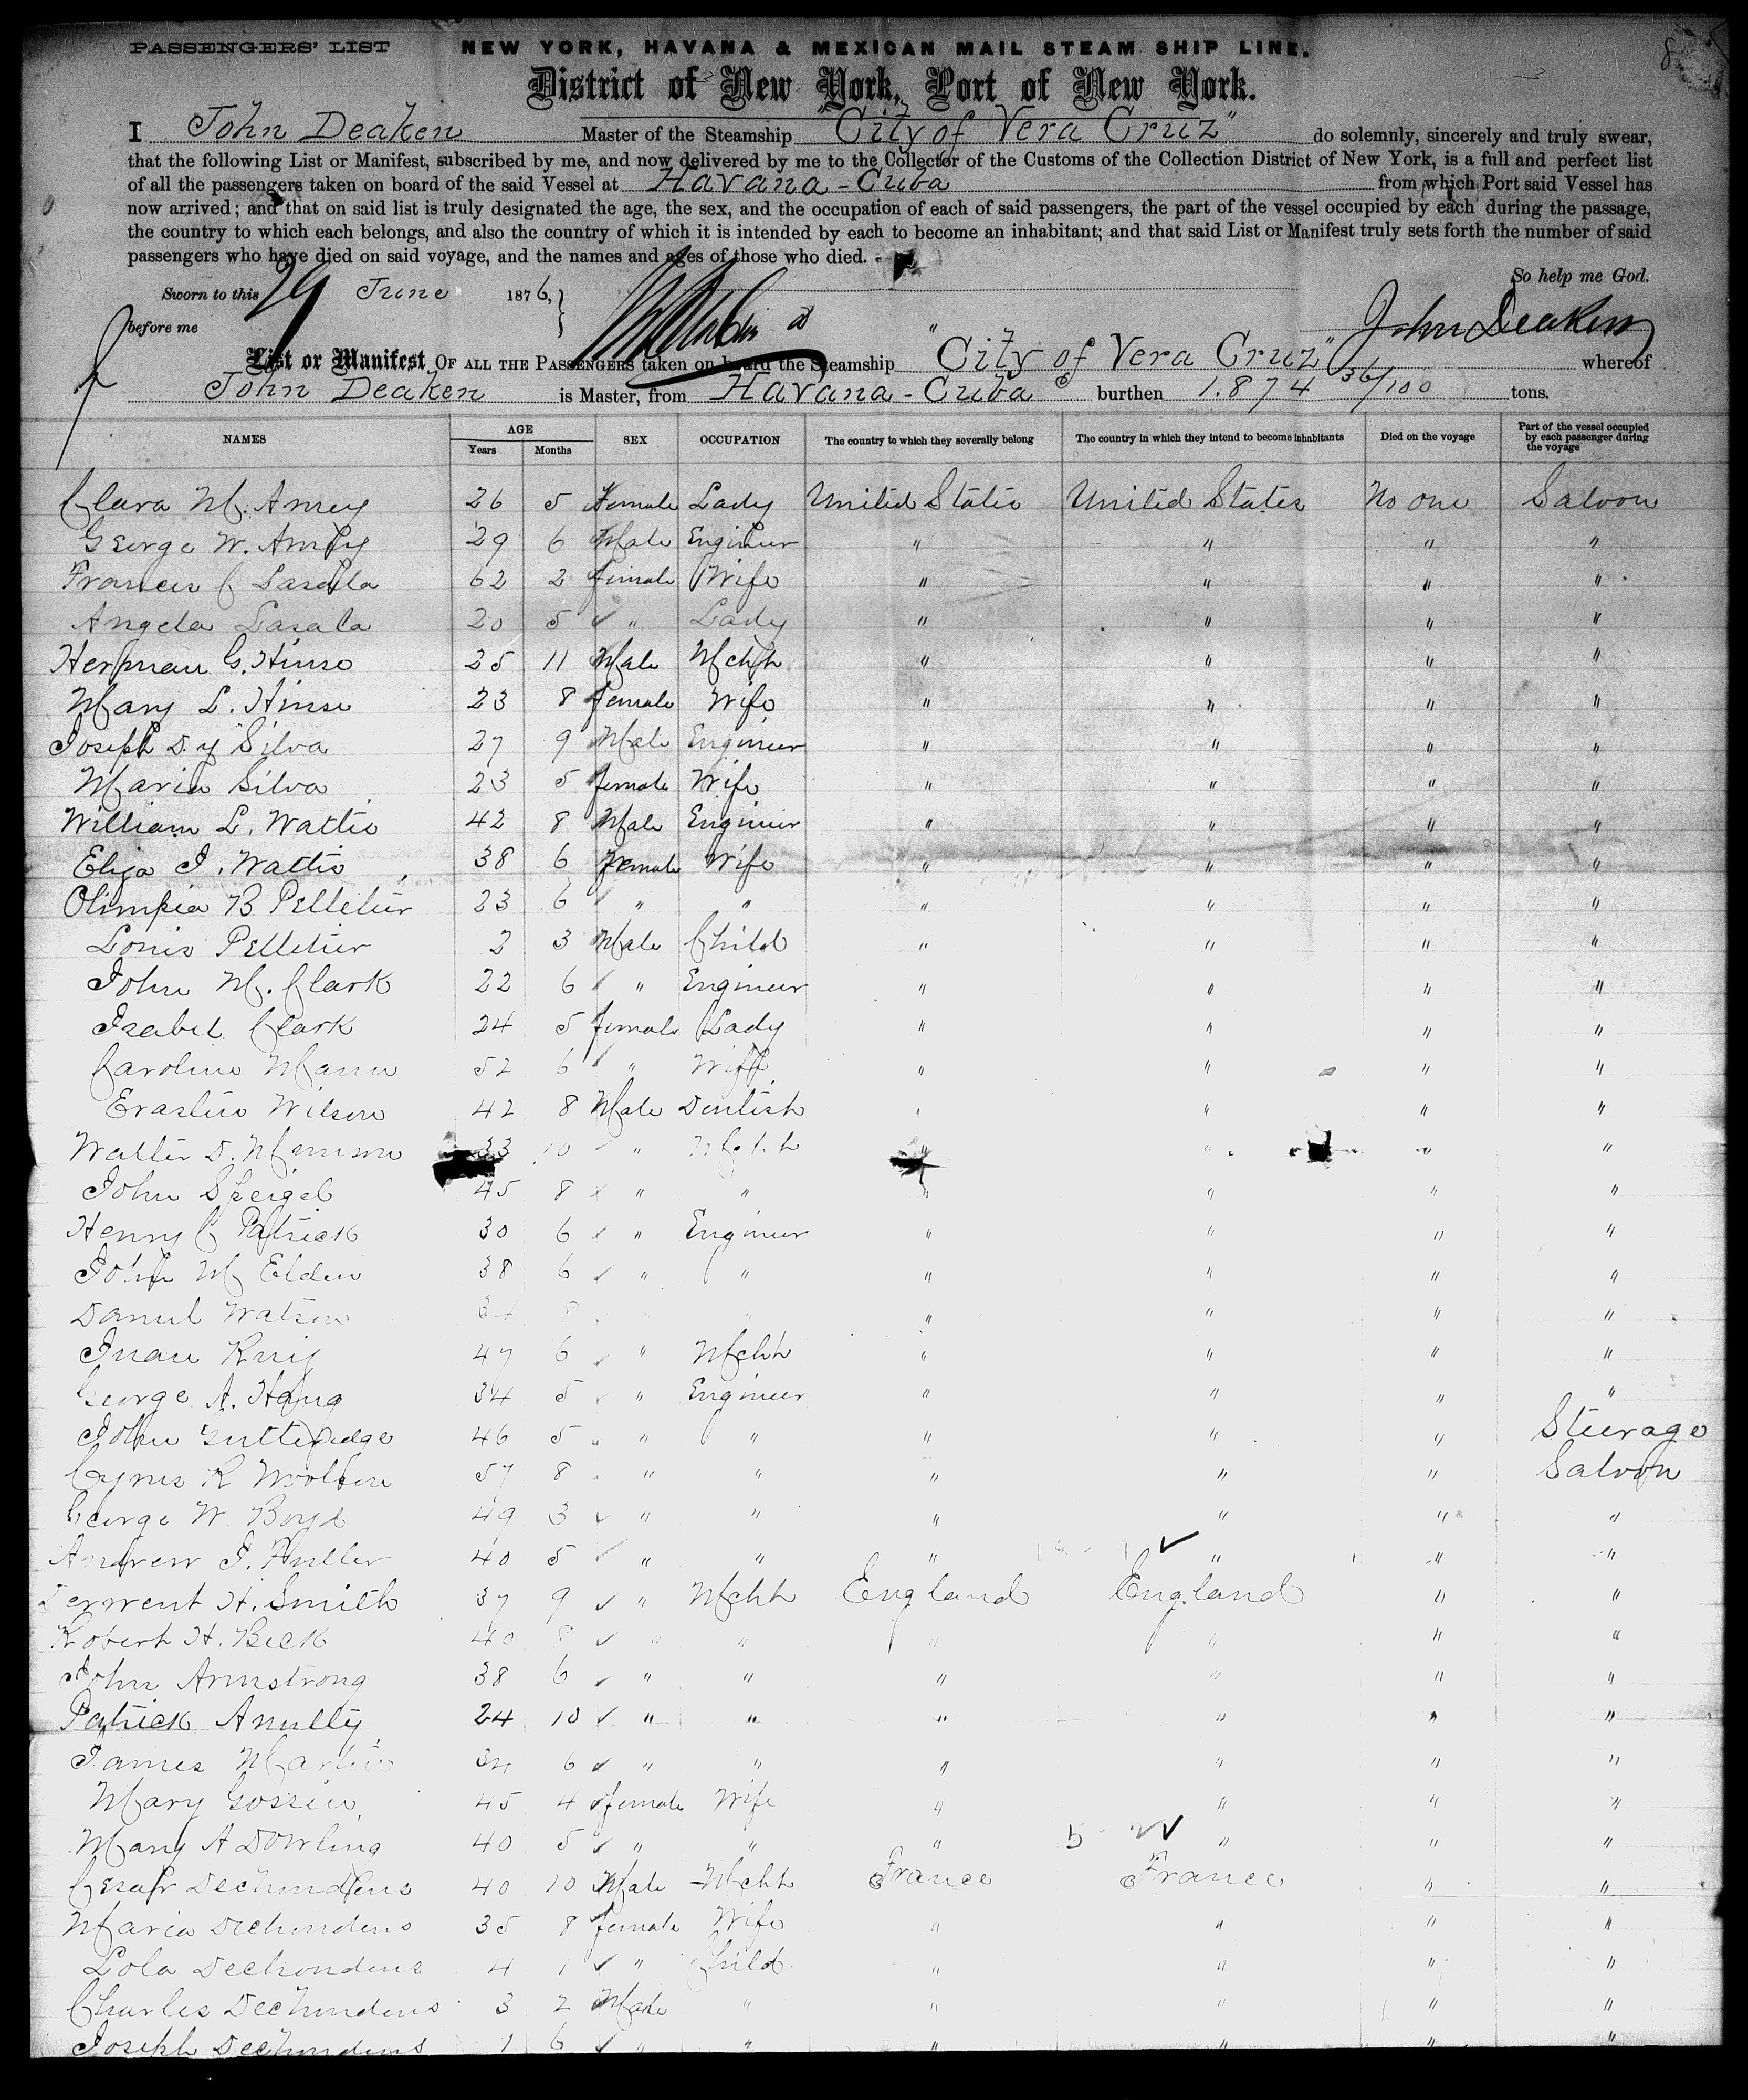 PASSENGERS' LIST NEW YORK, HAVANA & MEXICAN MAIL STEAM SHIP LINE.
District of New York, Port of New York.
I John Deaken Master of the Steamship "City of Vera Cruz" do solemnly, sincerely and truly swear,
that the following List or Manifest, subscribed by me, and now delivered by me to the Collector of the Customs of the Collection District of New York, is a full and perfect list
of all the passengers taken on board of the said Vessel at Havana - Cuba from which Port said Vessel has
now arrived; and that on said list is truly designated the age, the sex, and the occupation of each of said passengers, the part of the vessel occupied by each during the passage,
the country to which each belongs, and also the country of which it is intended by each to become an inhabitant; and that said List or Manifest truly sets forth the number of said
passengers who have died on said voyage, and the names and ages of those who died.
So help me God.
Sworn to this 29 June 1876,
before me John Deaken
List or Manifest OF ALL THE PASSENGERS taken on board the Steamship "City of Vera Cruz" whereof
John Deaken is Master, from Havana - Cuba burthen 1.874 36/100 tons.
NAMES AGE Years Months SEX OCCUPATION The country to which they severally belong The country in which they intend to become inhabitants Died on the voyage Part of the vessel occupied by each passenger during the voyage
Clara M. Amey 26 5 Female Lady United States United States No one Saloon
George W. Amey 29 6 Male Engineer " " " "
Francis C Lasala 62 2 female Wife " " " "
Angela Lasala 20 5 " Lady " " " "
Herman G. Hinse 25 11 Male Mcht " " " "
Mary L. Hinse 23 8 female Wife " " " "
Joseph D. y Silva 27 9 Male Engineer " " " "
Maria Silva 23 5 female Wife " " " "
William L. Wattis 42 8 Male Engineer " " " "
Eliza J. Wattis 38 6 Female Wife " " " "
Olimpia B Pelletier 23 6 " " " " " "
Louis Pelletier 2 3 Male Child " " " "
John M. Clark 22 6 " Engineer " " " "
Isabel Clark 24 5 female Lady " " " "
Caroline Mann 52 6 " Wife " " " "
Erastus Wilson 42 8 Male Dentist " " " "
Walter D. 33 10 " Mcht " " " "
John Speigel 45 8 " " " " " "
Henry C Patrick 30 6 " Engineer " " " "
John M Elden 38 6 " " " " " "
Daniel Watson 34 8 " " " "
Juan Ruiz 47 6 " Mcht " " " "
George A. Haug 34 5 " Engineer " " " "
John Gutteridge 46 5 " " " " " Steerage
Cyrus R 57 8 " " " " " Saloon
George W. Boyd 49 3 " " " " " "
Andrew J. Fuller 40 5 " " " " " "
Derwent H. Smith 37 9 " Mcht England England " "
Robert H. Beck 40 8 " " " " " "
John Armstrong 38 6 " " " " " "
Patrick Anully 24 10 " " " " " "
James Martin 34 6 " " " " " "
Mary Gossin 45 4 female Wife " " " "
Mary A Dowling 40 5 " " " " " "
Cesar Dechondens 40 10 Male Mcht France France " "
Maria Dechondens 35 8 female Wife " " " "
Lola Dechondens 4 1 " Child " " " "
Charles Dechondens 3 2 Male " " " " "
Joseph Dechondens 1 6 " " " " " "